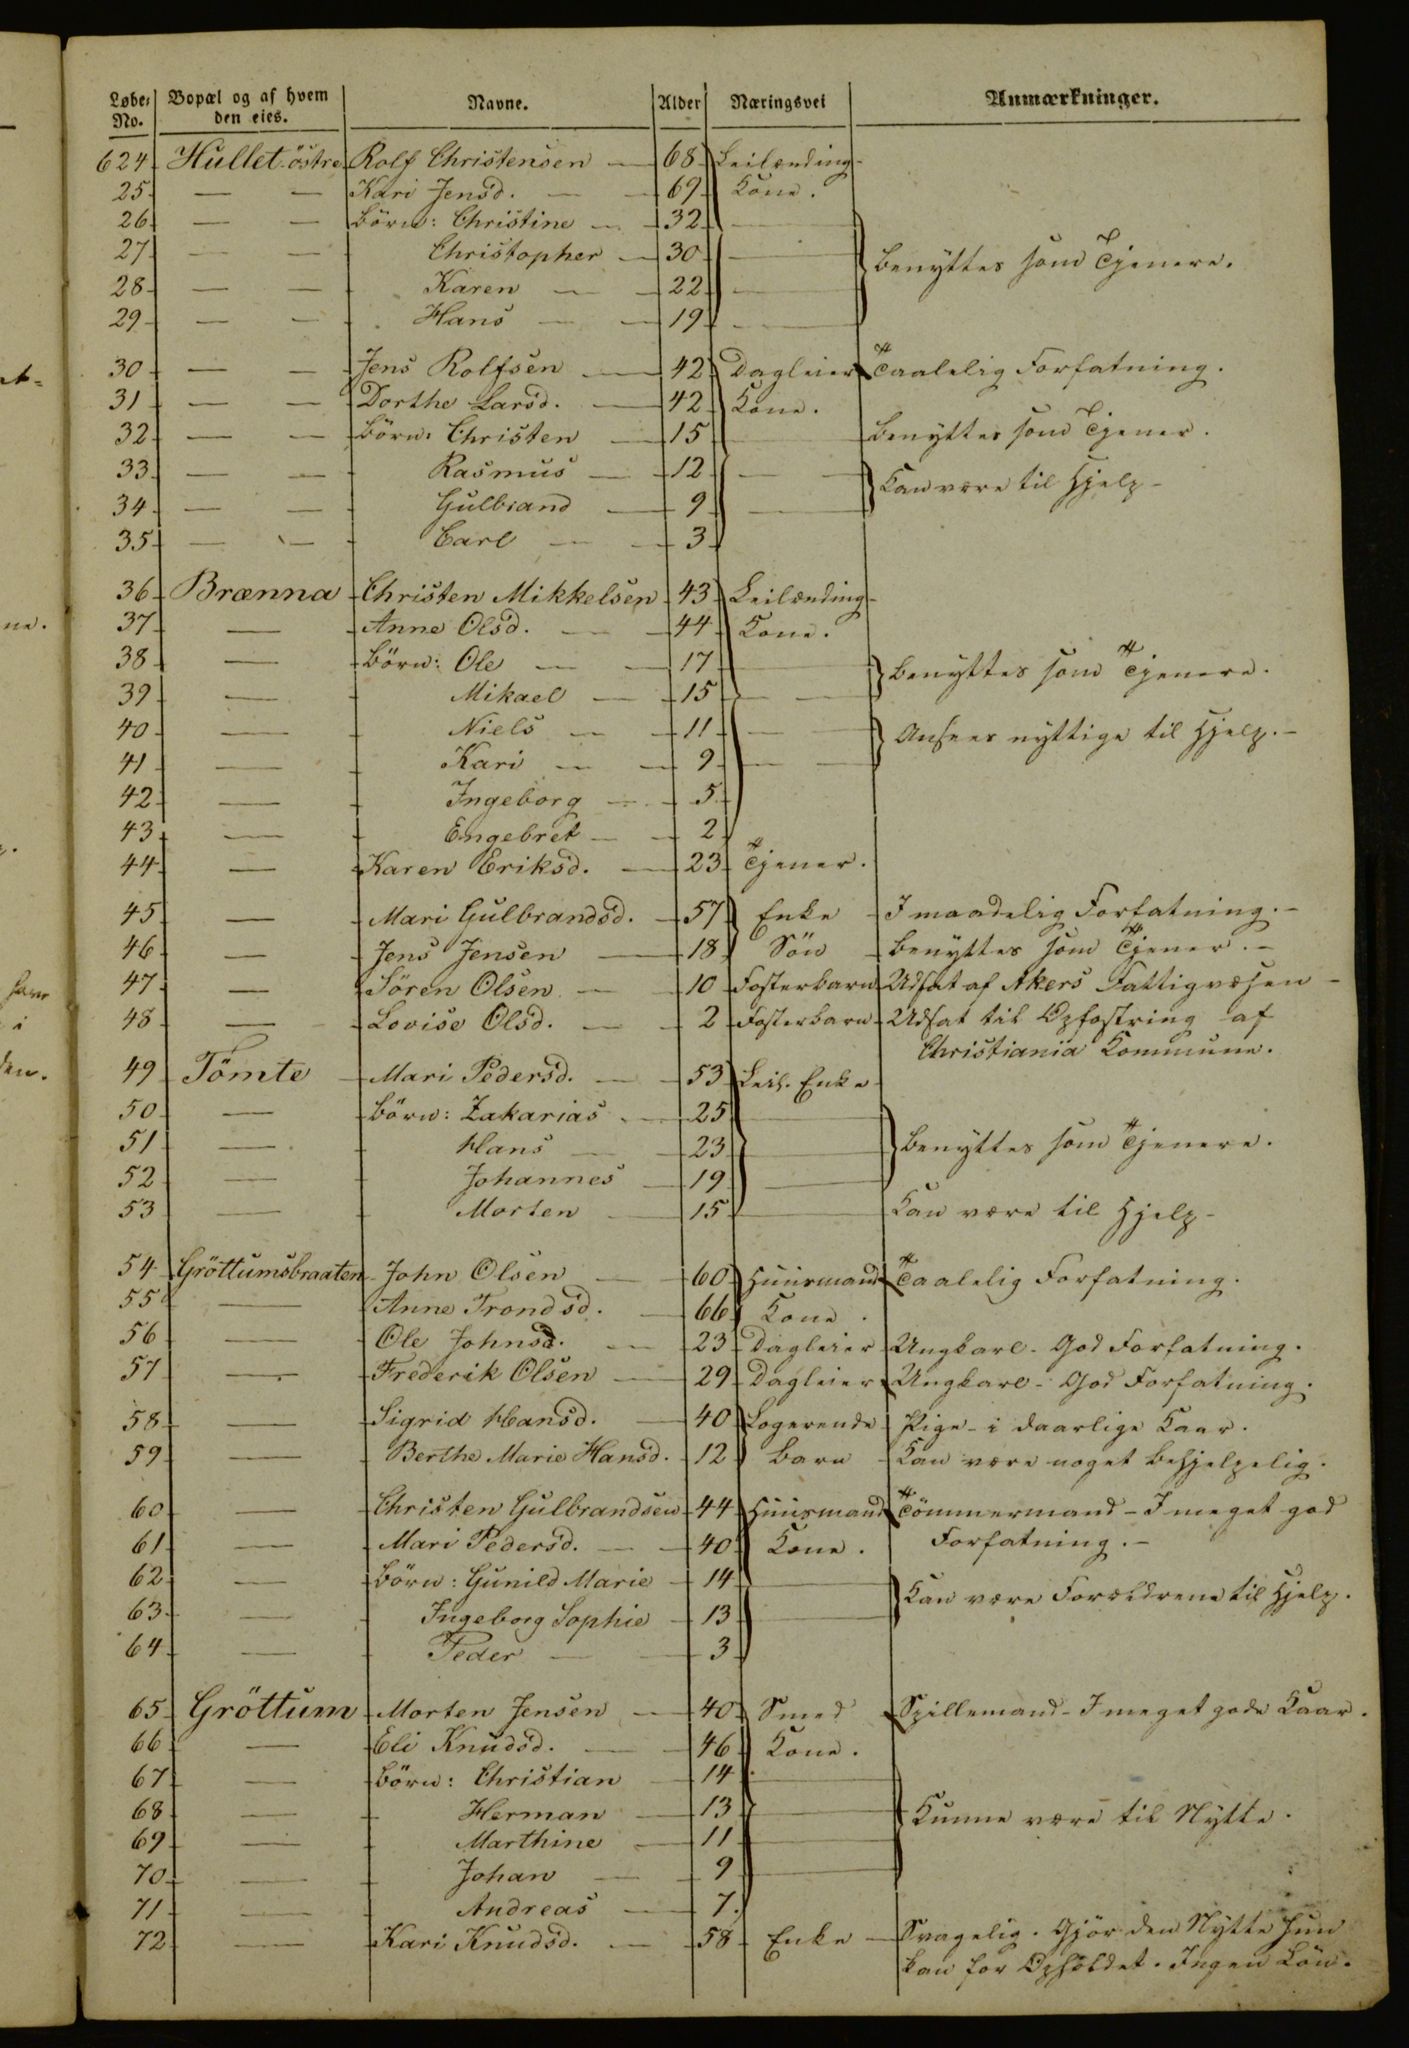 Løbe- No. Bopæl og af hvem den eies. Navne. Alder Næringsvei Anmærkninger.
624 Hullet østre Rolf Christensen — 68 Leilænding
25 — — Kari Jensd. — — 69 Kone.
26 — — Börn: Christine — 32 —
27 — — Christopher — 30 — Benyttes som Tjenere.
28 — — Karen — — 22 —
29 — — Hans — — 19 —
30 — — Jens Rolfsen — 42 Dagleier Taalelig Forfatning.
31 — — Dorthe Larsd. — 42 Kone.
32 — — Börn: Christen — 15 — Benyttes som Tjener.
33 — — Rasmus — 12 — — Kan være til Hjelp -
34 — — Gulbrand — 9 —
35 — — Carl — — 3
36 Brænna Christen Mikkelsen 43 Leilænding
37 — Anne Olsd. — — 44 Kone.
38 — Börn: Ole — — 17 — Benyttes som Tjenere.
39 — Mikael — 15 — —
40 — Niels — — 11 — — Ansees nyttige til Hjelp. -
41 — Kari — — 9 — —
42 — Ingeborg — - 5
43 — Engebret — - 2
44 — Karen Eriksd. — 23 Tjener.
45 — Mari Gulbrandsd. — 57 Enke I maadelig Forfatning. -
46 — Jens Jensen — 18 Sön Benyttes som Tjener. -
47 — Sören Olsen — - 10 Fosterbarn Udsat af Akers Fattigvæsen -
48 — Lovise Olsd. — - 2 Fosterbarn Udsat til Opfostring af
Christiania Kommune.
49 Tömte Mari Pedersd. — - 53 Leil. Enke
50 — Börn: Zakarias — 25 —
51 — Hans — - 23 Benyttes som Tjenere.
52 — Johannes — 19 —
53 — Morten — 15 — Kan være til Hjelp -
54 Gröttumsbraaten John Olsen — 60 Huusmand Taalelig Forfatning.
55 — Anne Trondsd. — 66 Kone.
56 — Ole Johnsd. — 23 Dagleier Ungkarl - God Forfatning.
57 — Frederik Olsen — 29 Dagleier Ungkarl - God Forfatning.
58 — Sigrid Hansd. — 40 Logerende Pige - i daarlige Kaar.
59 — Berthe Marie Hansd. 12 Barn Kan være noget behjelpelig.
60 — Christen Gulbrandsen 44 Huusmand Tömmermand - I meget god
61 — Mari Pedersd. — 40 Kone. Forfatning. -
62 — Börn: Gunild Marie - 14 — Kan være Forældrene til Hjelp.
63 — Ingeborg Sophie - 13 —
64 — Peder — — 3
65 Gröttum Morten Jensen — 40 Smed Spillemand - I meget gode Kaar.
66 — Eli Knudsd. — - 46 Kone.
67 — Börn: Christian — 14 —
68 — Herman — 13 — Kunne være til Nytte.
69 — Marthine — 11 —
70 — Johan — - 9 —
71 — Andreas — 7.
72 — Kari Knudsd. — 58 Enke — Svagelig. Gjör den Nytte hun
kan for Opholdet. Ingen Lön.